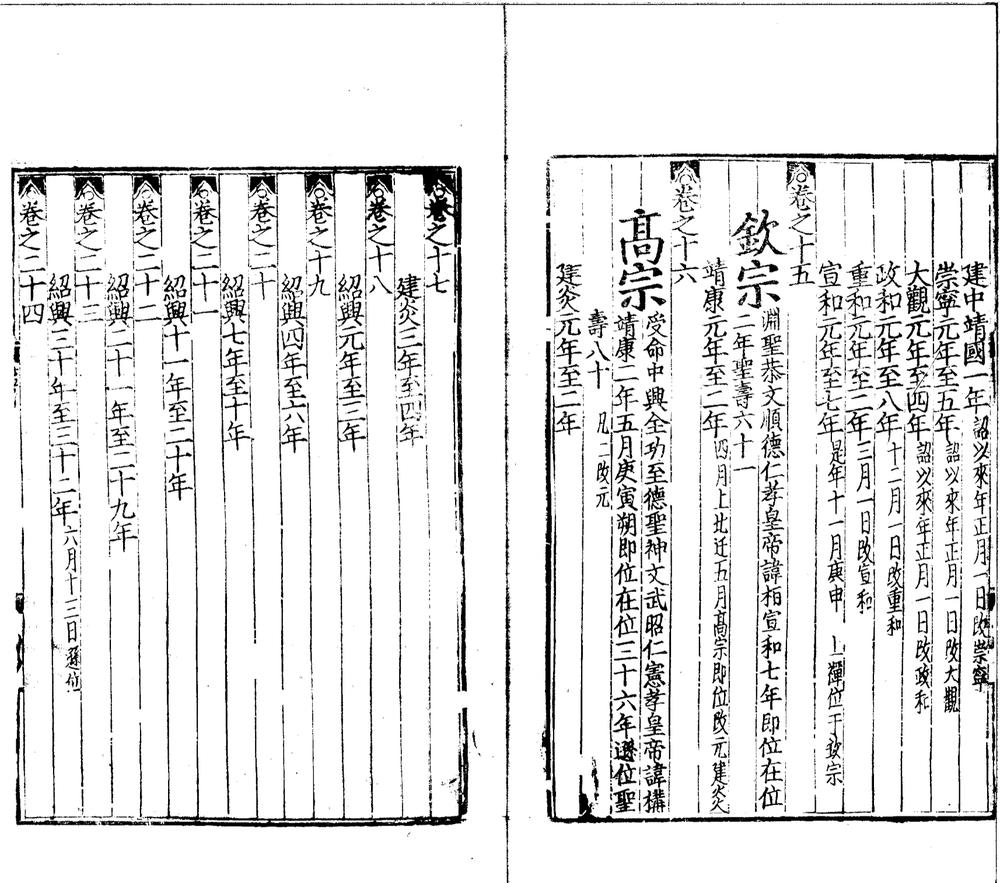 建中靖國一年詔以來年正月一日改崇寧
崇寧元年至五年詔以來年正月一日改大觀
大觀元年至四年詔以來年正月一日改政和
政和元年至八年十二月一日改重和
重和元年至二年三月一日改宣和
宣和元年至七年是年十一月庚申 上禪位于欽宗
卷之十五
欽宗淵聖恭文順德仁孝皇帝諱桓宣和七年即位在位
二年聖壽六十一
靖康元年至二年四月上北迁五月高宗即位改元建炎
卷之十六
高宗受命中興全功至德聖神文武昭仁憲孝皇帝諱構
靖康二年五月庚寅朔即位在位三十六年遜位聖
壽八十 凡二改元
建炎元年至二年
卷之十七
建炎三年至四年
卷之十八
紹興元年至三年
卷之十九
紹興四年至六年
卷之二十
紹興七年至十年
卷之二十一
紹興十一年至二十年
卷之二十二
紹興二十一年至二十九年
卷之二十三
紹興三十年至三十二年六月十三日遜位
卷之二十四